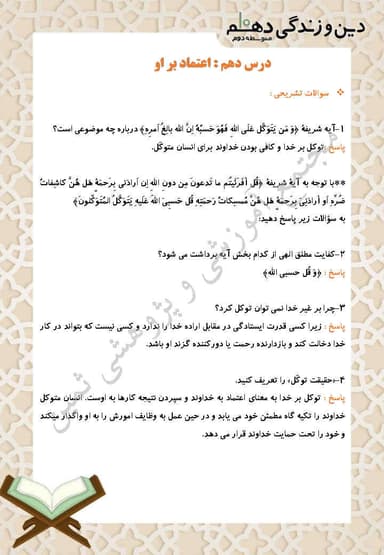 دین و زندگی دهم
متوسطه دوم
درس دهم : اعتماد بر او
سوالات تشریحی :
۱-آیه شریفهٔ ﴿وَ مَن یَتَوَکَّل عَلَی اللهِ فَهُوَ حَسبُهُ إنَّ الله بالِغُ اَمرِهِ﴾ درباره چه موضوعی است؟
پاسخ : توکل بر خدا و کافی بودن خداوند برای انسان متوکّل.
**با توجه به آیهٔ شریفهٔ ﴿قُل أفَرَأیتُم ما تَدعونَ مِن دونِ اللهِ إن أرادَنی بِرَحمَةٍ هَل هُنَّ کاشِفاتُ
ضُرِّهِ أو أرادَنی بِرَحمَةٍ هَل هُنَّ مُمسِکاتُ رَحمَتِهِ قُل حَسبِیَ اللهُ عَلَیهِ یَتَوَکَّلُ المُتَوَکِّلونَ﴾
به سؤالات زیر پاسخ دهید:
۲-کفایت مطلق الهی از کدام بخش آیه برداشت می شود؟
پاسخ : ﴿وَ قُل حسبی الله﴾
۳-چرا بر غیر خدا نمی توان توکل کرد؟
پاسخ : زیرا کسی قدرت ایستادگی در مقابل اراده خدا را ندارد و کسی نیست که بتواند در کار
خدا دخالت کند و بازدارنده رحمت یا دورکننده گزند او باشد.
۴-«حقیقت توکّل» را تعریف کنید.
پاسخ : توکل بر خدا به معنای اعتماد به خداوند و سپردن نتیجه کارها به اوست. انسان متوکل
خداوند را تکیه گاه مطمئن خود می یابد و در حین عمل به وظایف امورش را به او واگذار میکند
و خود را تحت حمایت خداوند قرار می دهد.